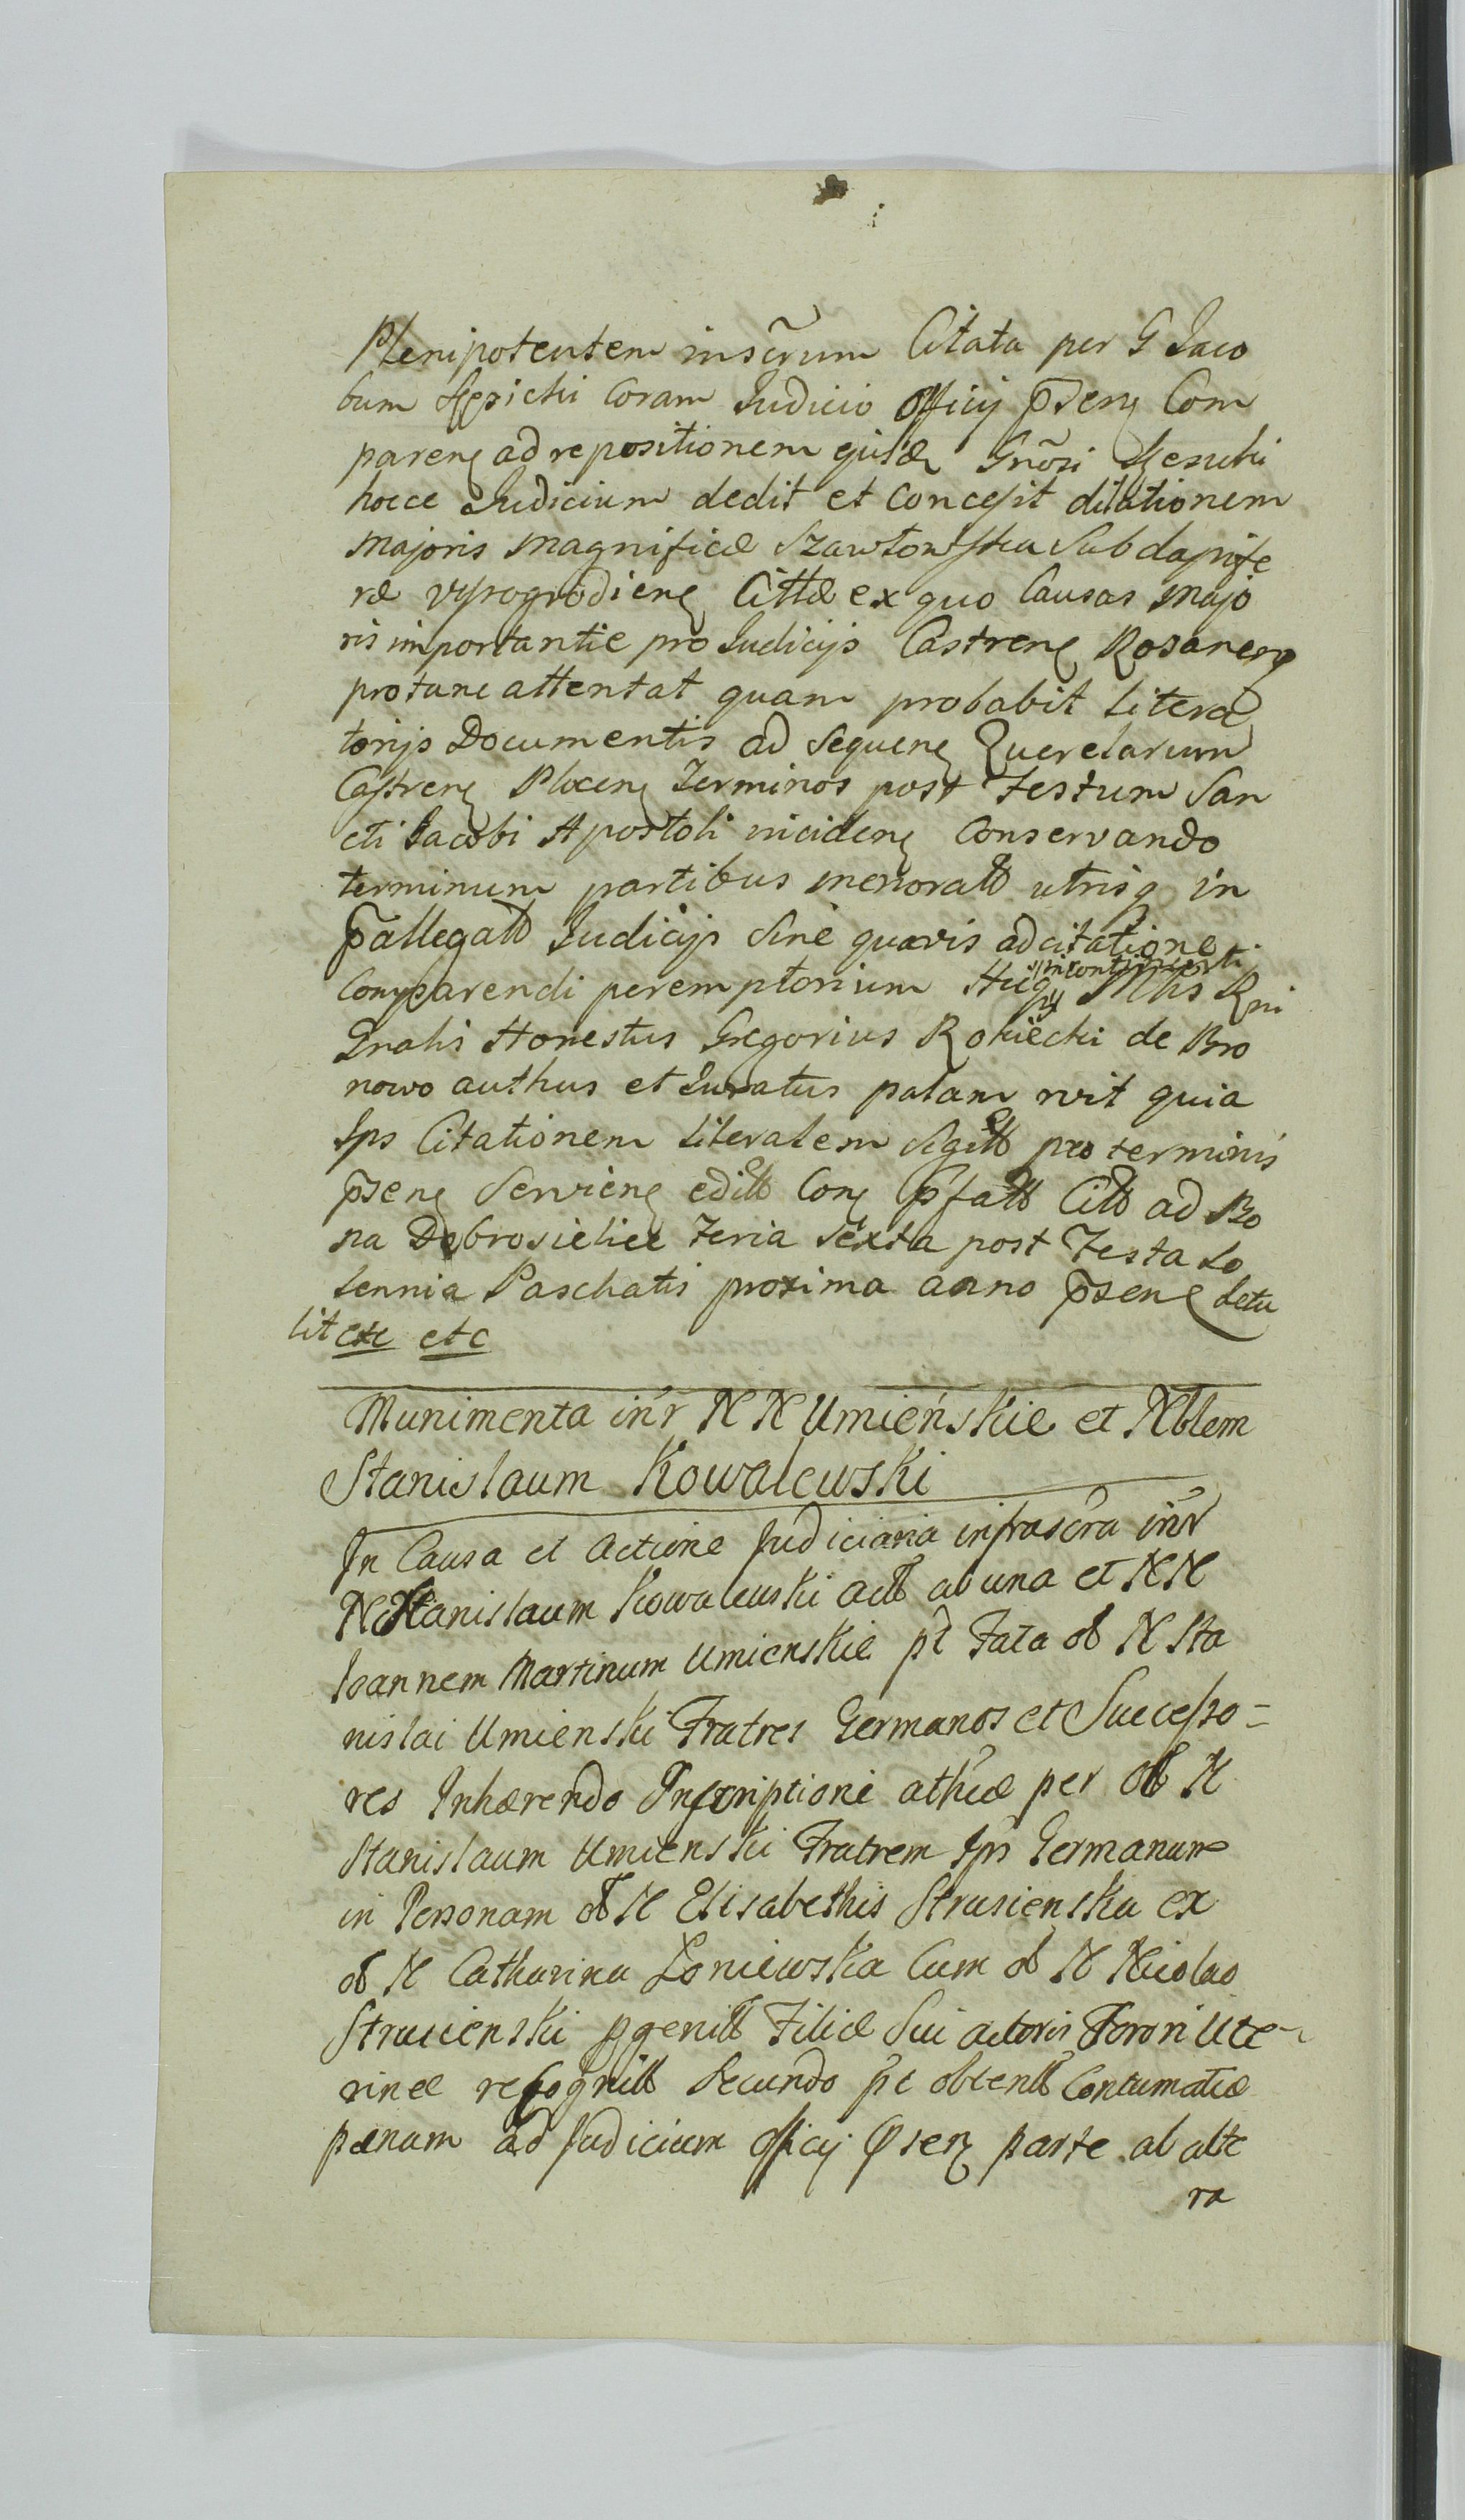 Plenipotentem inscrum Citata per G Jaco
bum coram Judicio Officij pseng Com
pareng ad repositionem ejusd Gnosi
hocce Judicium dedit et concessit dilationem
Majoris Magnificæ Szawłowska Subdapife
ræ vysogrodieng Cittæ ex quo Causas Majo
ris importantiæ pro Judicijs Castreng Rozaneng
protunc attentat quam probabit litera
torijs Documentis ad Sequeng Querelarum
Castreng Ploceng Terminos post Festum San
cti Jacobi Apostoli incideng Conservando
terminum partibus memoratt utrisq in
pallegatt Judicijs Sine quavis adcitatione
Comparendi peremptorium Mtis Rni
Gnalis Honestus Gregorius Rokiecki de Bro
nowo authus et Juratus palam rvit quia
Ips Citationem literalem Sigill pro terminis
pseng Servieng editt Cong pfatt Citt ad Bo
na Dobrosielice Feria Sexta post Festa So
lennia Paschatis proxima anno pseng detu
lit etc etc
Munimenta in'r NN Umieńskie et Nblem
Stanislaum Kowalewski
In Causa et actione Judiciaria infrascra in'r
N Stanislaum Kowalewski actt ab una et NN
Joannem Martinum Umienskie pt Fata ob N Sta
nislai Umienski Fratres Germanos et Successo=
res Inhærendo Inscriptioni athicæ per ob N
Stanislaum Umienski Fratrem Ips Germanum
in Personam ob N Elisabethis Strusienska ex
ob N Catharina Loniewska Cum ob N Nicolao
Strusienski pgenitt Filiæ Sui actoris Sorori Ute-
rinæ recognitt Secundo pt obtentt Contumatiæ
pænam ad Judicium Officij pseng parte ab alte
ra